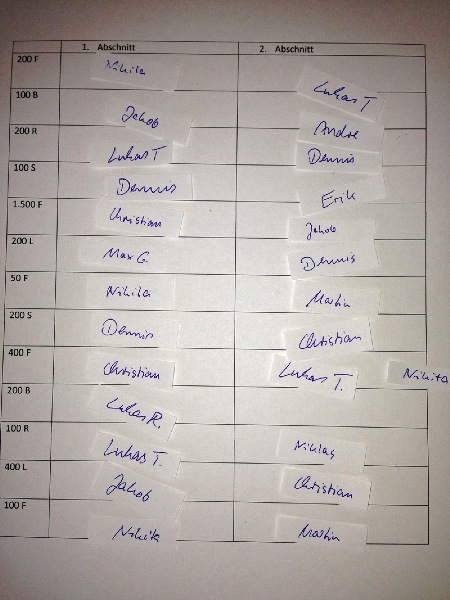 1. Abschnitt 2. Abschnitt
200 F Nikita Lukas T
100 B Jakob Andre
200 R Lukas T Dennis
100 S Dennis Erik
1.500 F Christian Jakob
200 L Max G. Dennis
50 F Nikita Martin
200 S Dennis Christian
400 F Christian Lukas T. Nikita
200 B Lukas R.
100 R Lukas T. Niklas
400 L Jakob Christian
100 F Nikita Martin